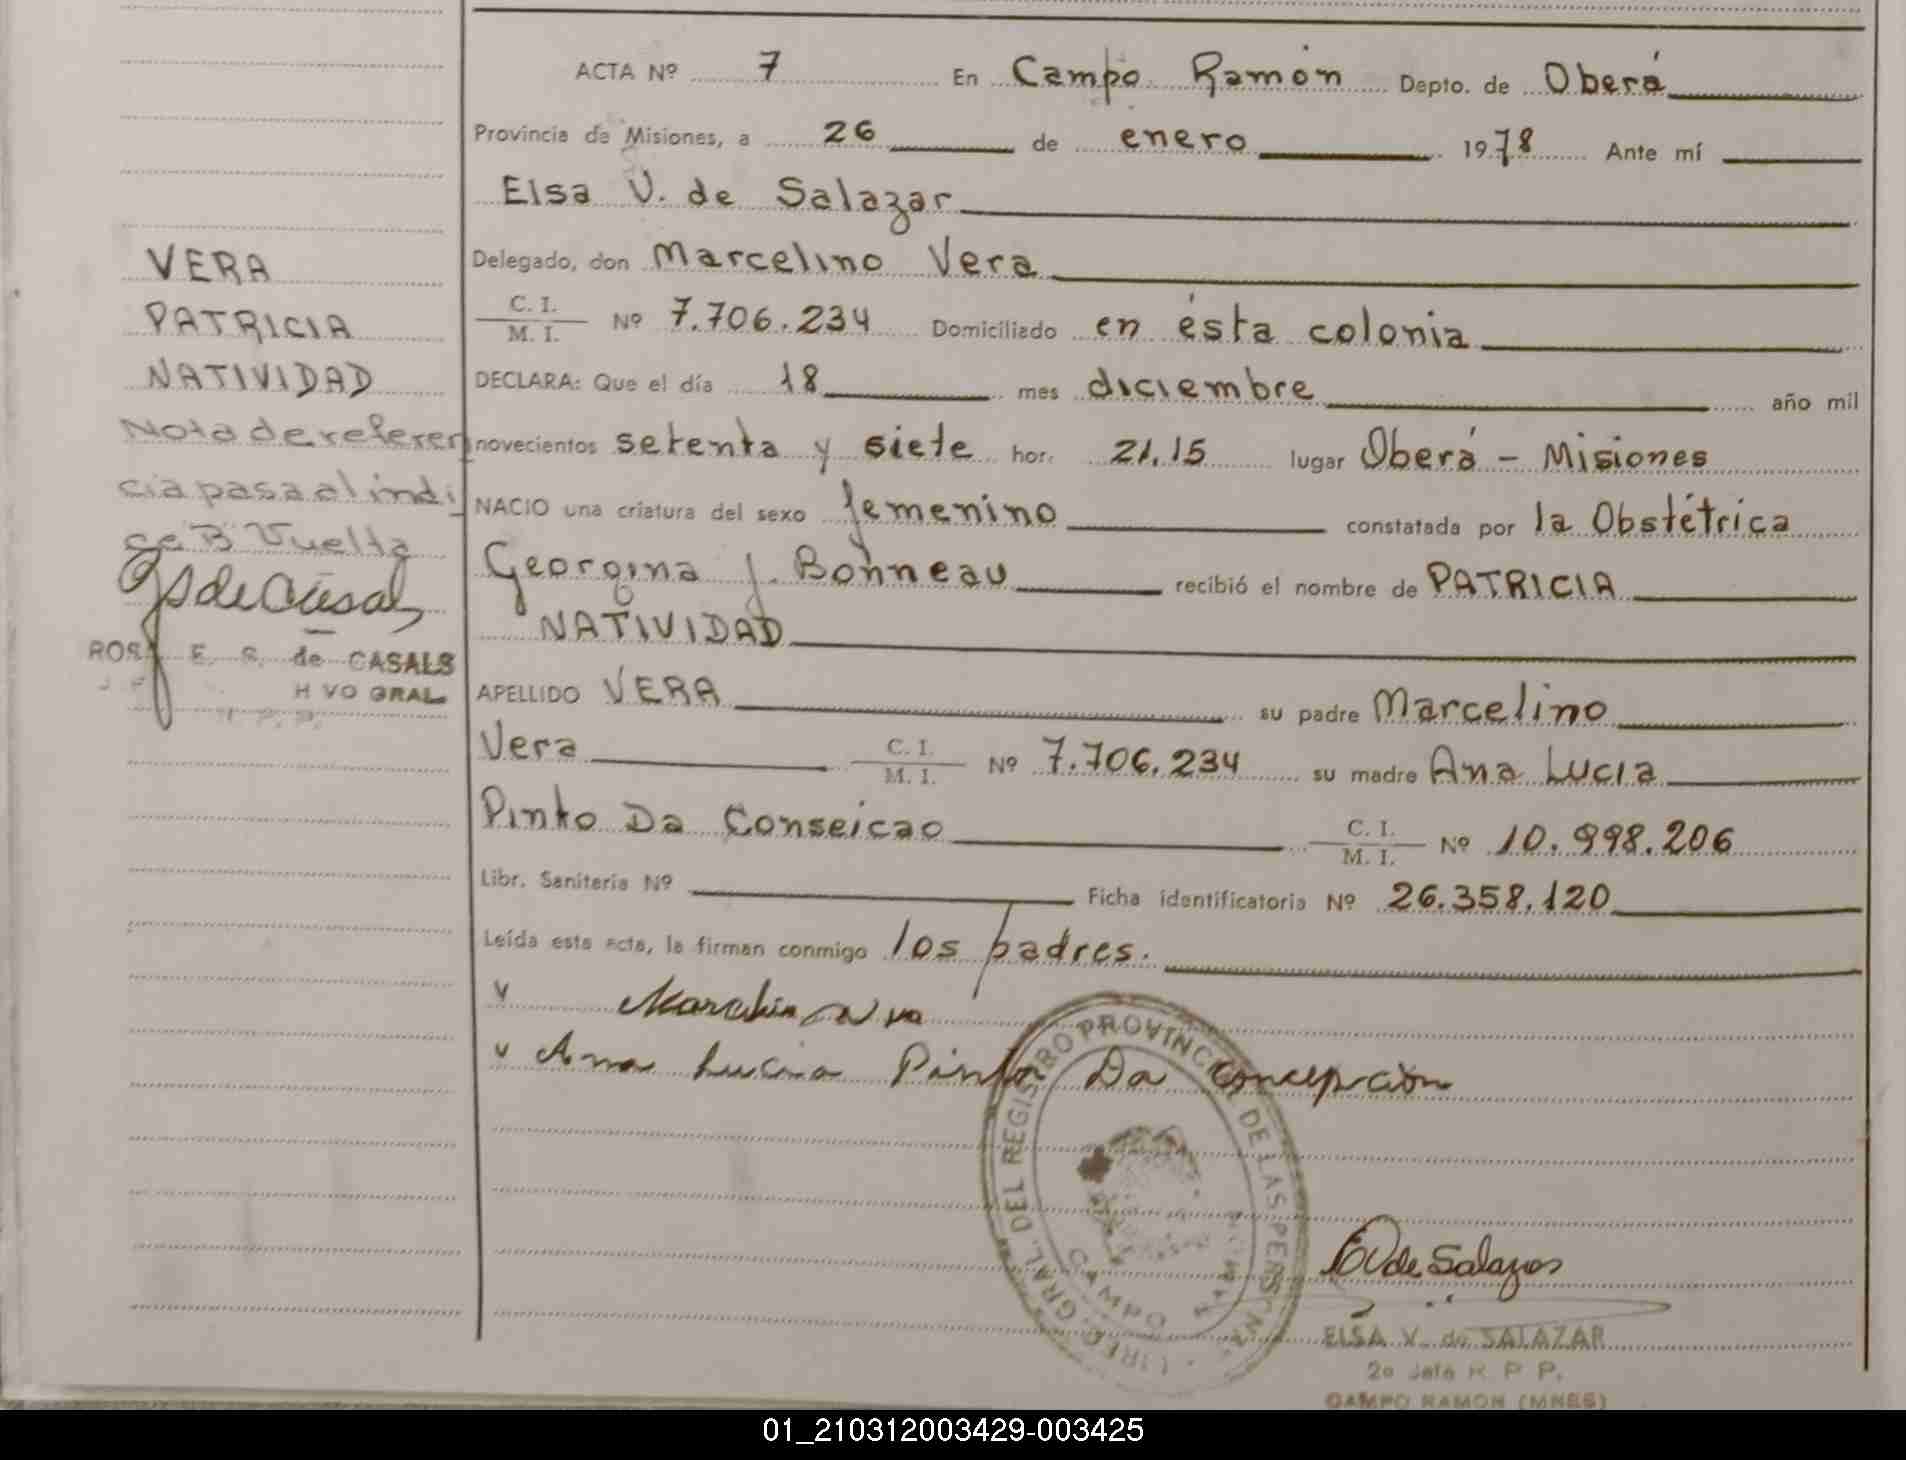 ACTA Nº 7 En Campo Ramón Depto. de Oberá
Provincia de Misiones, a 26 de enero 1978 Ante mí
Elsa V. de Salazar
Delegado, don Marcelino Vera
C. I. / M. I. Nº 7.706.234 Domiciliado en ésta colonia
DECLARA: Que el día 18 mes diciembre año mil
novecientos setenta y siete hor. 21.15 lugar Oberá - Misiones
NACIO una criatura del sexo femenino constatada por la Obstétrica
Georgina J. Bonneau recibió el nombre de PATRICIA
NATIVIDAD
APELLIDO VERA su padre Marcelino
Vera C. I. / M. I. Nº 7.706.234 su madre Ana Lucia
Pinto Da Conseicao C. I. / M. I. Nº 10.998.206
Libr. Sanitaria Nº Ficha identificatoria Nº 26.358.120
Leída esta acta, la firman conmigo los padres.
Ana Lucia Pinto Da Concepción
VERA
PATRICIA
NATIVIDAD
Nota de referen
cia pasa al indi
ce B Vuelta
de Casals
E. S. de CASALS
H VO GRAL
GRAL. DEL REGISTRO PROVINCIAL DE LAS PERSONAS
CAMPO RAMON
EV de Salazar
ELSA V. de SALAZAR
2o Jefe R P P.
CAMPO RAMON (MNES)
01_210312003429-003425